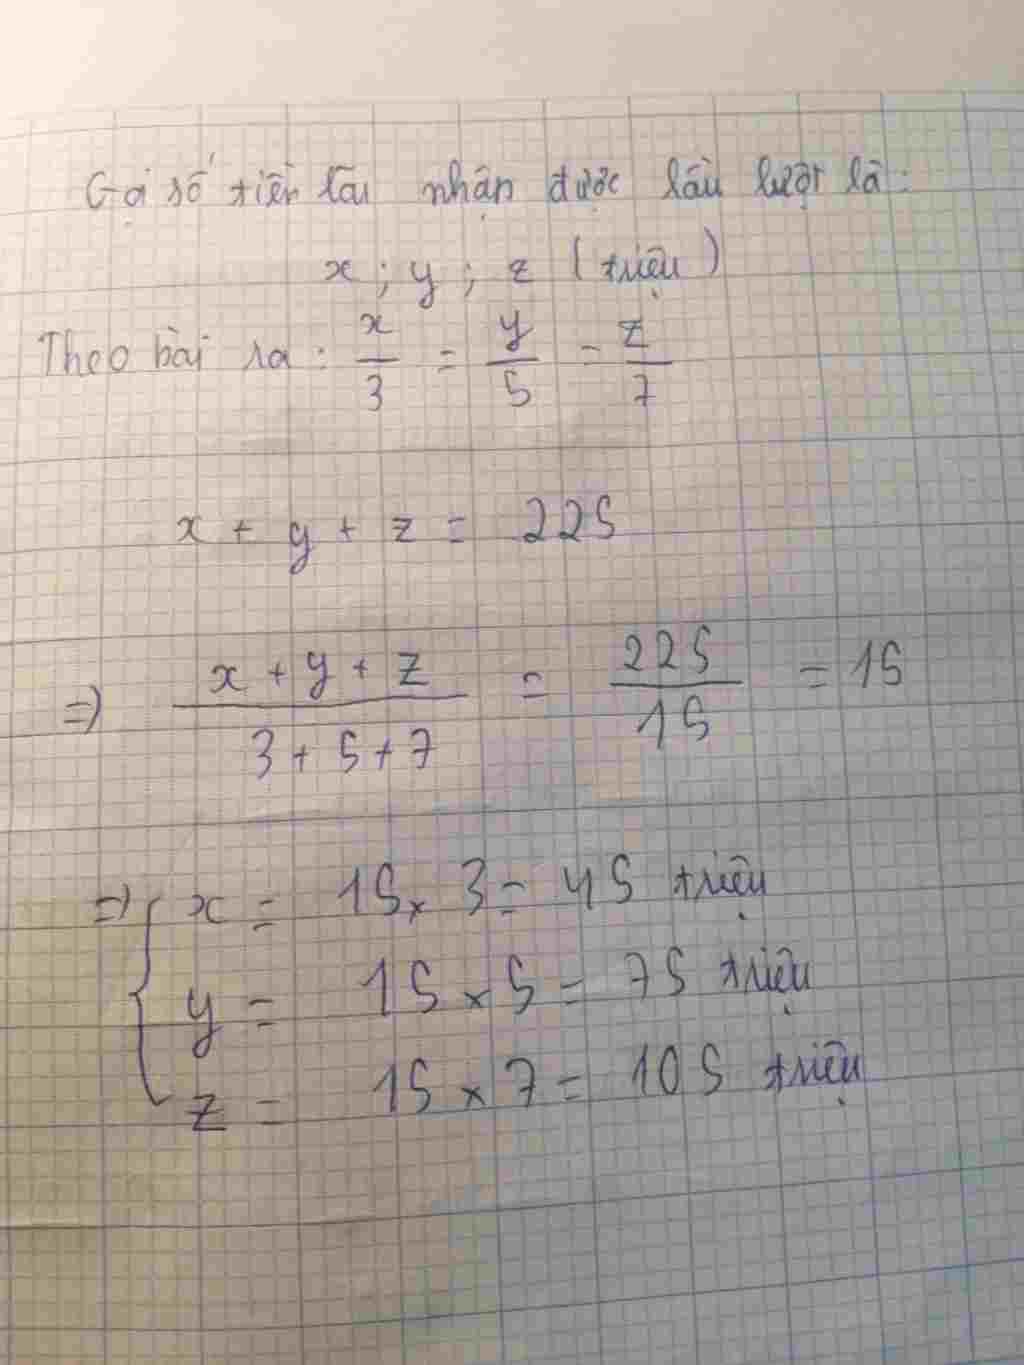 Gọi số tiền lãi nhận được lần lượt là:
x ; y ; z ( triệu )
Theo bài ra : x/3 = y/5 = z/7
x + y + z = 225
=> (x + y + z)/(3 + 5 + 7) = 225/15 = 15
=> { x = 15 x 3 = 45 triệu
y = 15 x 5 = 75 triệu
z = 15 x 7 = 105 triệu